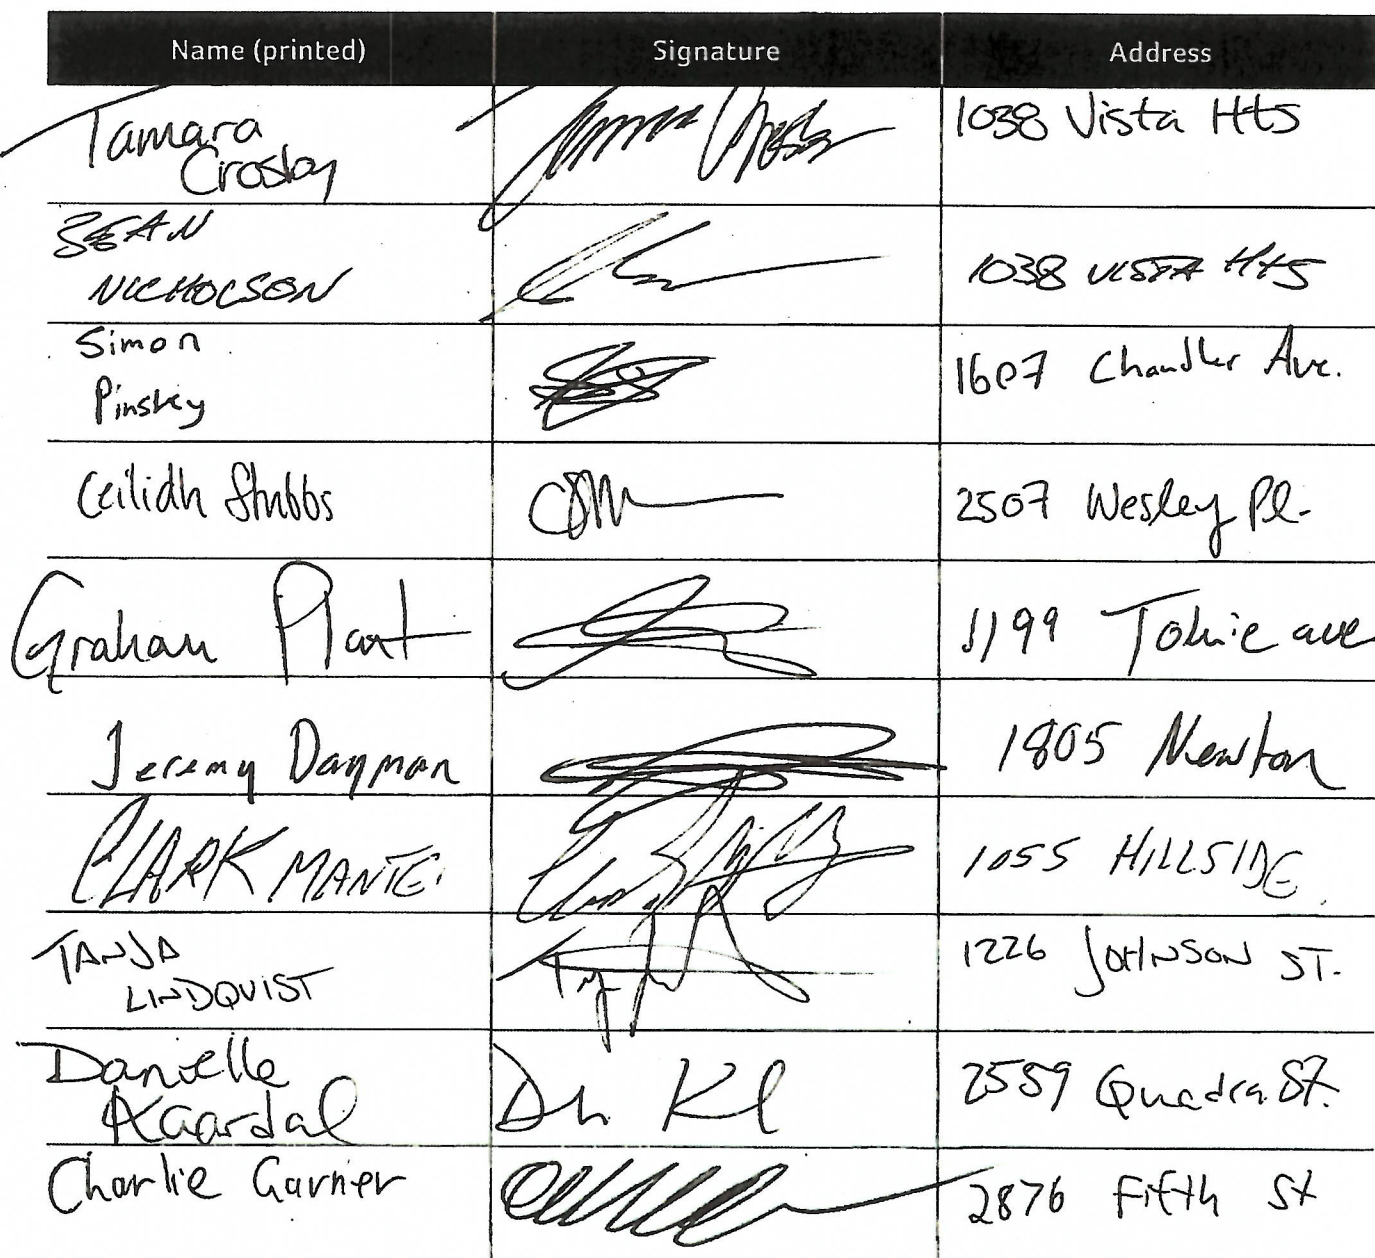 Name (printed) Signature Address
Tamara
Crosby
1038 Vista Hts
SEAN
NICHOLSON
1038 VISTA Hts
Simon
Pinskey
1607 Chandler Ave.
Ceilidh Stubbs
2507 Wesley Pl.
Graham Plant
1199 Tolmie ave
Jeremy Dayman
1805 Newton
CLARK MANTEI
1055 HILLSIDE
TANJA
LINDQUIST
1226 JOHNSON ST.
Danielle
Kaardal
Dh Kl
2559 Quadra St.
Charlie Garnier
2876 Fifth St